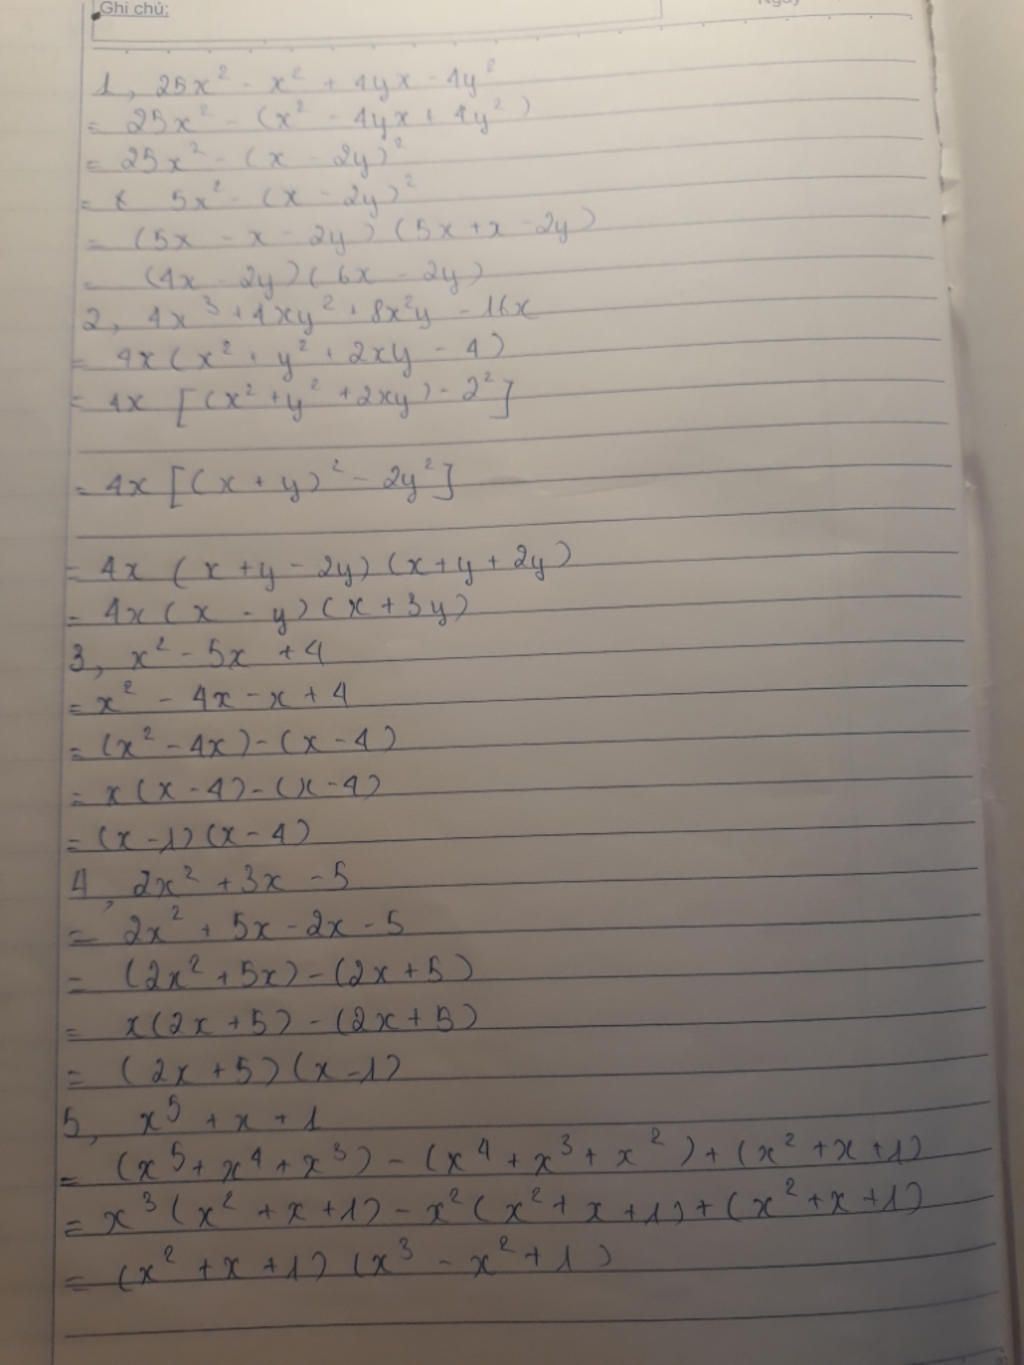 Ghi chú:
1, 25x² - x² + 4yx - 4y²
= 25x² - (x² - 4yx + 4y²)
= 25x² - (x - 2y)²
= 5x² - (x - 2y)²
= (5x - x - 2y) (5x + x - 2y)
= (4x - 2y) (6x - 2y)
2, 4x³ + 4xy² + 8x²y - 16x
= 4x (x² + y² + 2xy - 4)
= 4x [(x² + y² + 2xy) - 2²]
= 4x [(x + y)² - 2y²]
= 4x (x + y - 2y) (x + y + 2y)
= 4x (x - y) (x + 3y)
3, x² - 5x + 4
= x² - 4x - x + 4
= (x² - 4x) - (x - 4)
= x (x - 4) - (x - 4)
= (x - 1) (x - 4)
4, 2x² + 3x - 5
= 2x² + 5x - 2x - 5
= (2x² + 5x) - (2x + 5)
= x(2x + 5) - (2x + 5)
= (2x + 5) (x - 1)
5, x⁵ + x + 1
= (x⁵ + x⁴ + x³) - (x⁴ + x³ + x²) + (x² + x + 1)
= x³ (x² + x + 1) - x² (x² + x + 1) + (x² + x + 1)
= (x² + x + 1) (x³ - x² + 1)